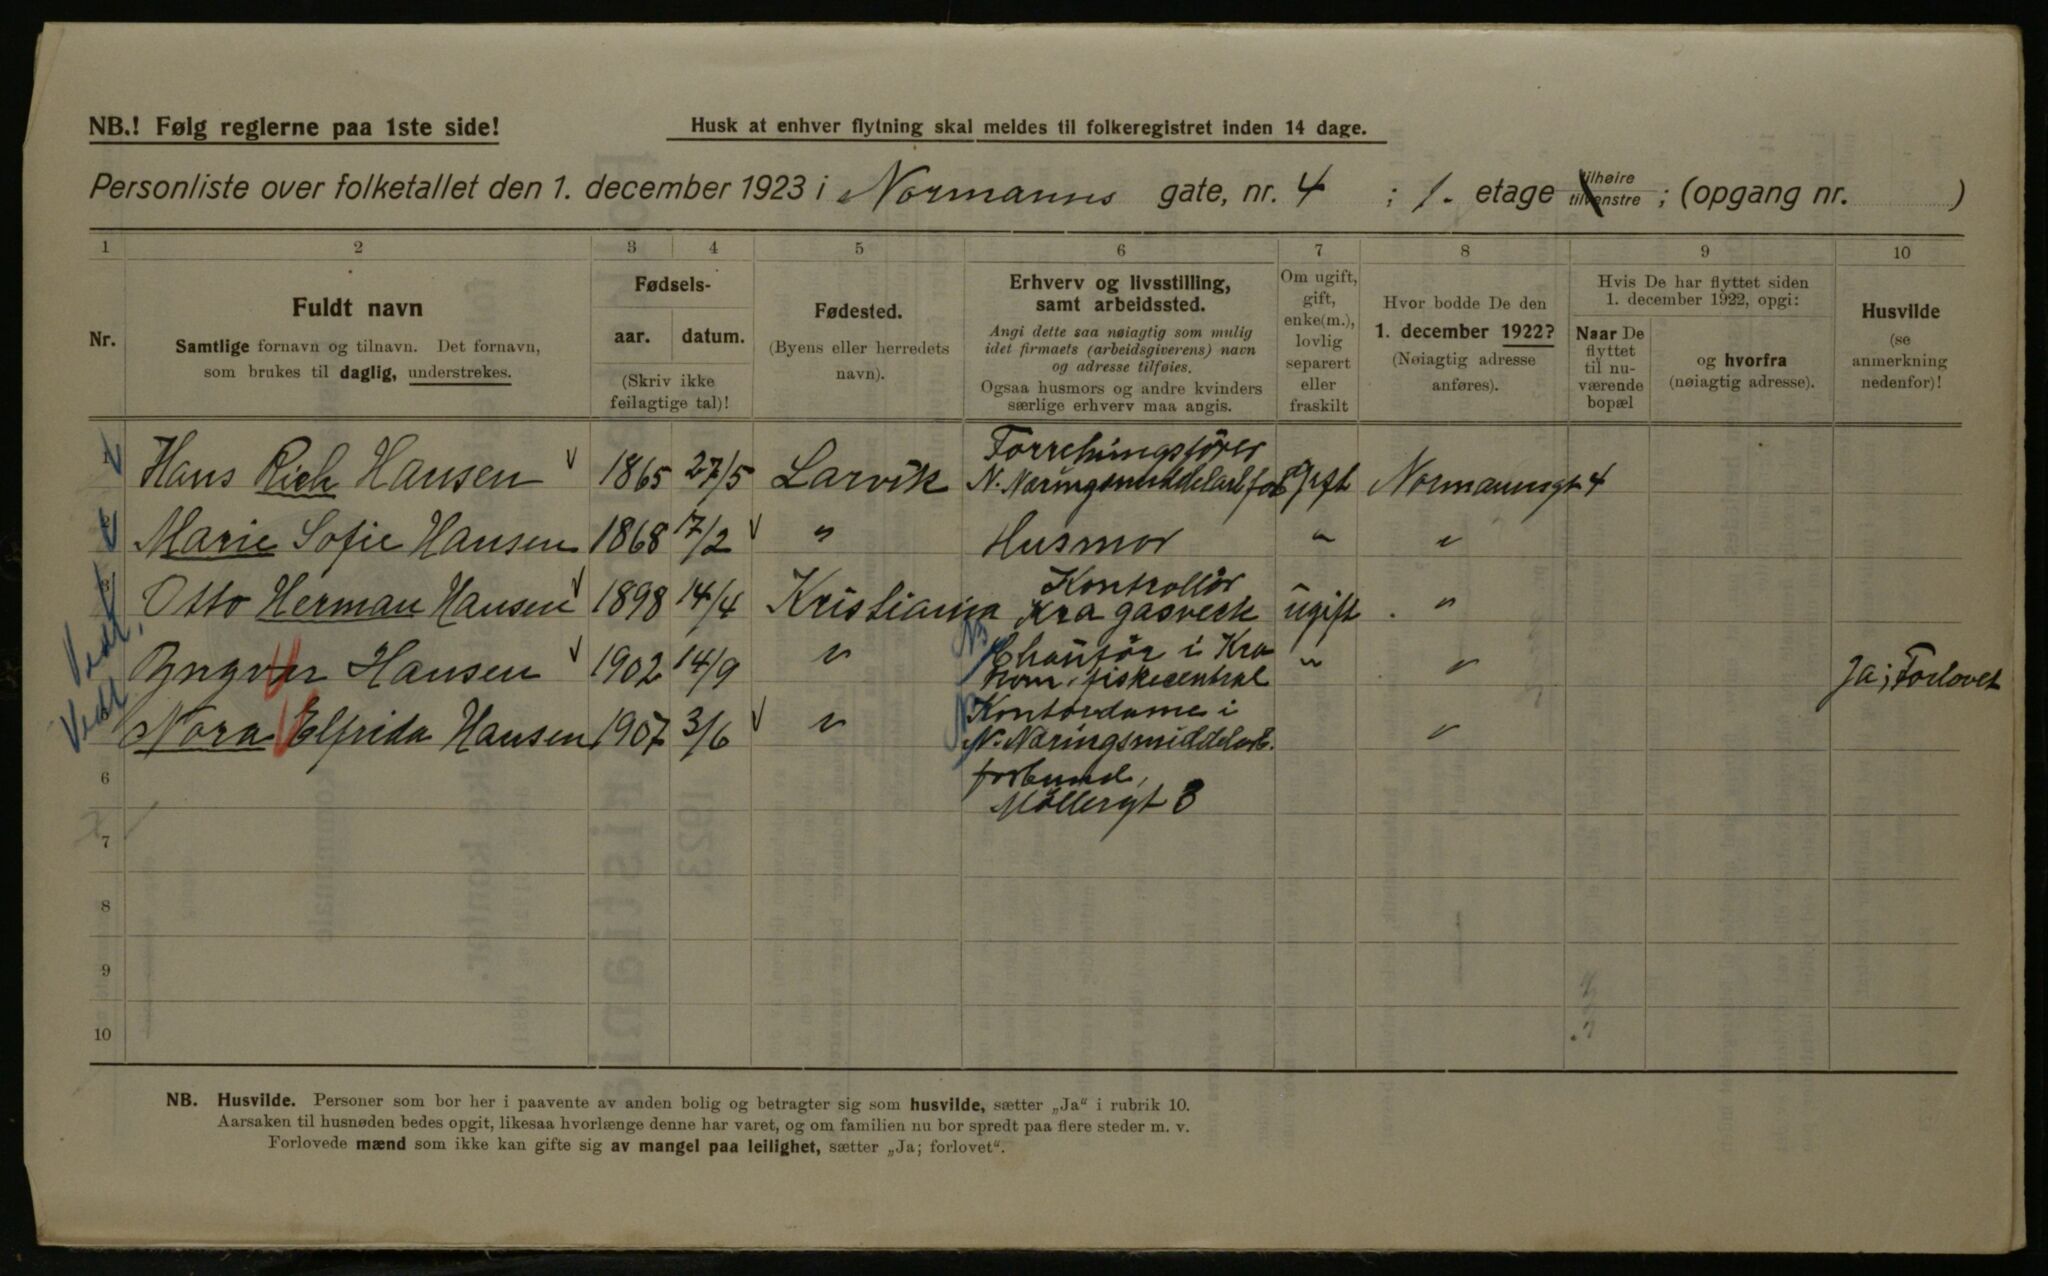 NB.! Følg reglerne paa 1ste side!
Husk at enhver flytning skal meldes til folkeregistret inden 14 dage.
Personliste over folketallet den 1. december 1923 i Normanns gate, nr. 4 ; 1. etage tilhøire tilvenstre ; (opgang nr. )
1 2 3 4 5 6 7 8 9 10
Nr.
Fuldt navn
Samtlige fornavn og tilnavn. Det fornavn,
som brukes til daglig, understrekes.
Fødsels-
aar. datum.
(Skriv ikke
feilagtige tal)!
Fødested.
(Byens eller herredets
navn).
Erhverv og livsstilling,
samt arbeidssted.
Angi dette saa nøiagtig som mulig
idet firmaets (arbeidsgiverens) navn
og adresse tilføies.
Ogsaa husmors og andre kvinders
særlige erhverv maa angis.
Om ugift,
gift,
enke(m.),
lovlig
separert
eller
fraskilt
Hvor bodde De den
1. december 1922?
(Nøiagtig adresse
anføres).
Hvis De har flyttet siden
1. december 1922, opgi:
Naar De
flyttet
til nu-
værende
bopæl
og hvorfra
(nøiagtig adresse).
Husvilde
(se
anmerkning
nedenfor)!
Hans Rich Hansen 1865 27/5 Larvik Forretningsfører N. Næringsmiddelarb.forb gift Normannsgt 4
Marie Sofie Hansen 1868 17/2 " Husmor " "
Otto Herman Hansen 1898 14/4 Kristiania Kontrollör Kra gasverk ugift "
Vedt. Yngvar Hansen 1902 14/9 " Chauför i Kra kom. fiskecentral " " Ja; Forlovet
Vedt Nora Elfrida Hansen 1907 3/6 " Kontordame i N. Næringsmiddelarb. "
6 forbund,
Möllergt 3
7
8
9
10
NB. Husvilde. Personer som bor her i paavente av anden bolig og betragter sig som husvilde, sætter „Ja“ i rubrik 10.
Aarsaken til husnøden bedes opgit, likesaa hvorlænge denne har varet, og om familien nu bor spredt paa flere steder m. v.
Forlovede mænd som ikke kan gifte sig av mangel paa leilighet, sætter „Ja; forlovet“.